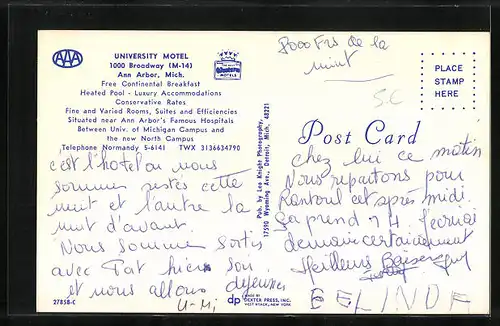 AAA
UNIVERSITY MOTEL
1000 Broadway (M-14)
Ann Arbor, Mich.
Free Continental Breakfast
Heated Pool - Luxury Accommodations
Conservative Rates
Fine and Varied Rooms, Suites and Efficiencies
Situated near Ann Arbor's Famous Hospitals
Between Univ. of Michigan Campus and
the new North Campus
Telephone Normandy 5-6141 TWX 3136634790
c'est l'hotel ou nous
sommes restés cette
nuit et l'autre la
nuit d'avant.
Nous sommes sortis
avec Pat hier soir
et nous allons déjeuner
27858-C
Pub. by Leo Knight Photography,
17590 Wyoming Ave., Detroit, Mich. 48221
dp MADE BY DEXTER PRESS, INC.
WEST NYACK, NEW YORK
8000 Frs de la
nuit
PLACE
STAMP
HERE
S.C
Post Card
chez lui ce matin
Nous repartons pour
Rantoul cet après midi.
ça prend
certainement
Meilleurs Baisers
BELINDA